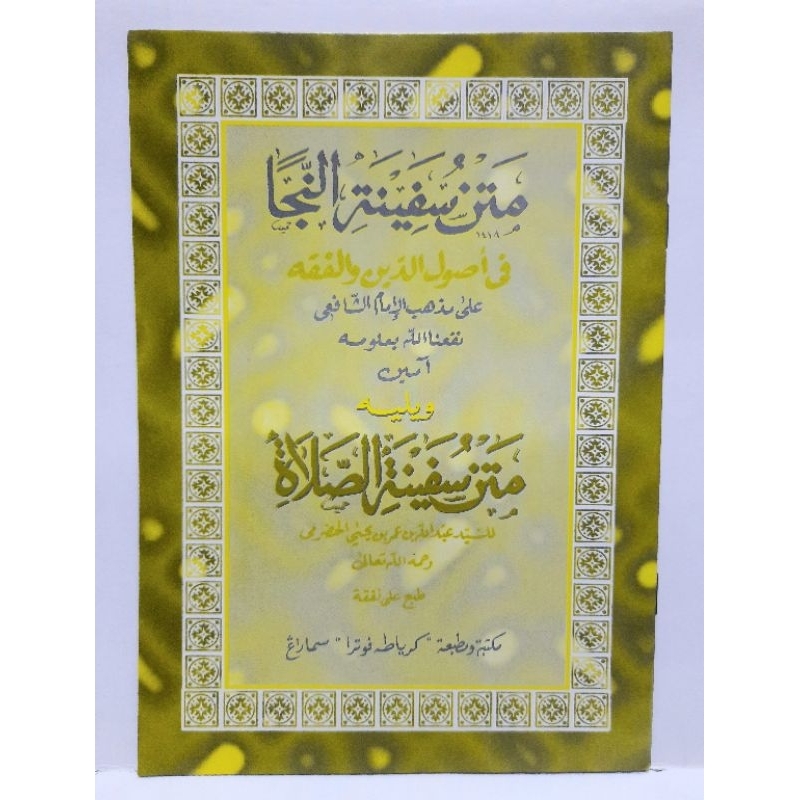 مَتَنْ سُفَيِنَةِ النَّجَا
١٤١٨
في أصول الدين والفقه
على مذهب الإمام الشافعي
نفعنا الله بعلومه
آمين
ويليه
مَتَنْ سُفَيِنَةِ الصَّلَاةِ
للسيد عبد الله بن عمر بن يحيى الحضرمي
رحمه الله تعالى
طبع على نفقة
مكتبة ومطبعة "كرياطه فوترا" سماراڠ